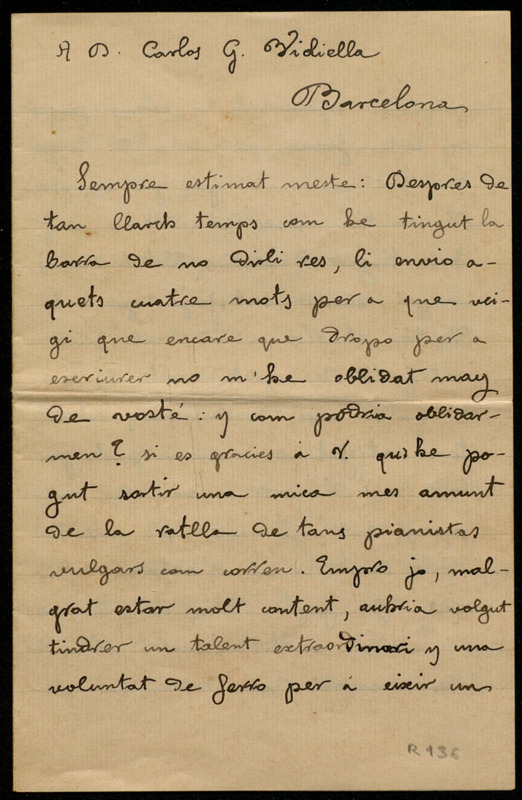 A D. Carlos G. Vidiella
Barcelona
Sempre estimat mestre: Despres de
tan llarch temps com he tingut la
barra de no dirli res, li envio a-
quets cuatre mots per a que vei-
gi que encare que dropo per a
escriurer no m'he oblidat may
de vosté: y com podria oblidar-
men? si es gracies á V. qu'he po-
gut sortir una mica mes amunt
de la ratlla de tans pianistas
vulgars com corren. Empro jo, mal-
grat estar molt content, auhria volgut
tindrer un talent extraordinari y una
voluntat de ferro per á eixir un
R 136